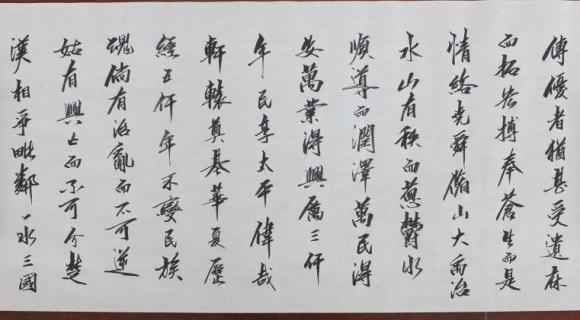 傳優者猶甚受遺
而拓苦搏奉蒼生而是
情給堯舜循山大禹治
水山有秩而蔥鬱水
順導而潤澤萬民得
安萬業得興厲三仟
年民享太平偉哉
軒轅奠基華夏歷
經五仟年不變民族
魂倘有治亂而不可逆
姑有興亡而不可分楚
漢相爭毗鄰一水三國